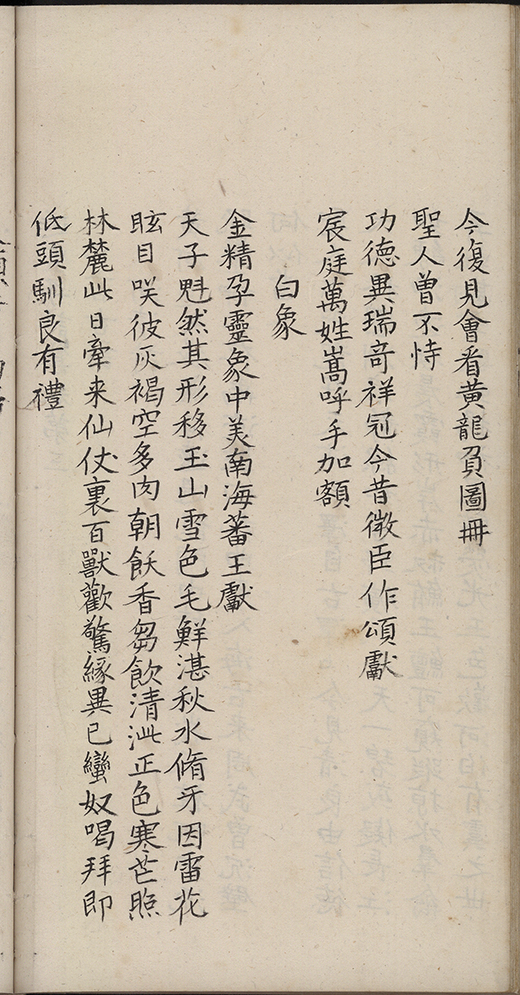 今復見會看黄龍負圖冊
聖人曾不恃
功德異瑞竒祥冠今昔微臣作頌獻
宸庭萬姓嵩呼手加額
白象
金精孕靈象中美南海蕃王獻
天子魁然其形移玉山雪色毛鮮湛秋水脩牙因雷花
眩目咲彼灰褐空多肉朝飫香芻飲清泚正色寒芒照
林麓此日牽来仙仗裏百獸歡驚緣異已蠻奴喝拜即
低頭馴良有禮